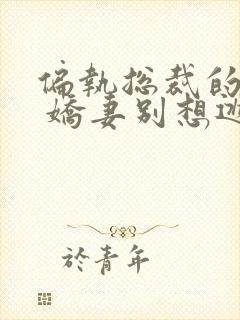 偏執总裁的
嬌妻别想逃
於青年